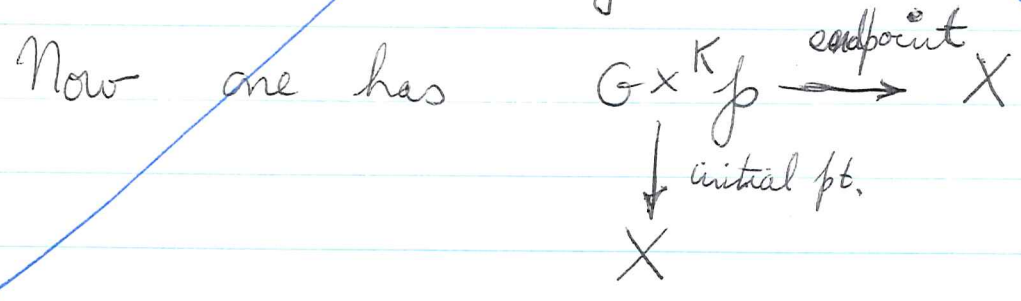 Now one has G ×^K 𝔭 ⟶ X
endpoint
↓ initial pt.
X